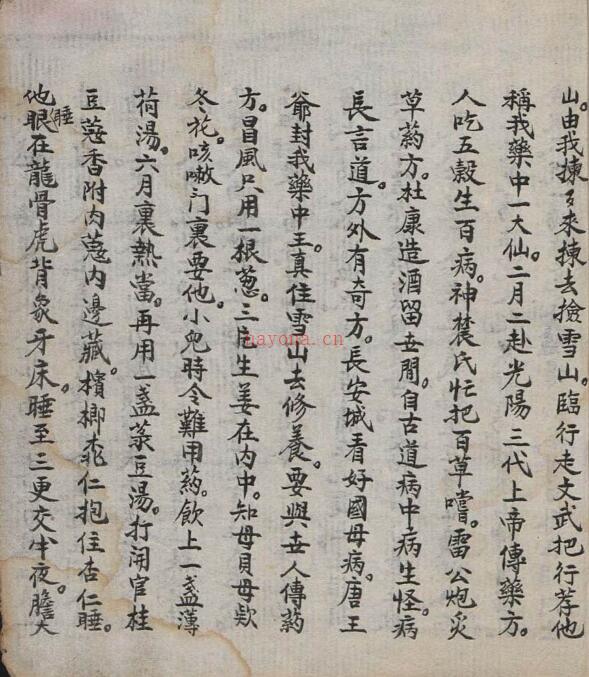 山。由我揀了來揀去撿雪山。臨行走文武把行荐他
稱我藥中一大仙。二月二赴光陽三代上帝傳藥方。
人吃五穀生百病。神農氏忙把百草嚐。雷公炮炙
草药方。杜康造酒留世間。自古道病中病生怪病
長言道。方外有奇方。長安城看好國母病。唐王
爺封我藥中王。真住雪山去修養。要與世人傳药
方。冒風只用一根葱。三片生姜在内中。知母貝母欵
冬花。咳嗽门裏要他。小兒時令難用药。飲上一盏薄
荷湯。六月裏熱當。再用一盏菉豆湯。打開官桂
豆蔻香附肉蔻内邊藏。檳榔桃仁抱住杏仁睡。
他睡眼在龍骨虎背象牙床。睡至三更交半夜。膽大
nayona.cn